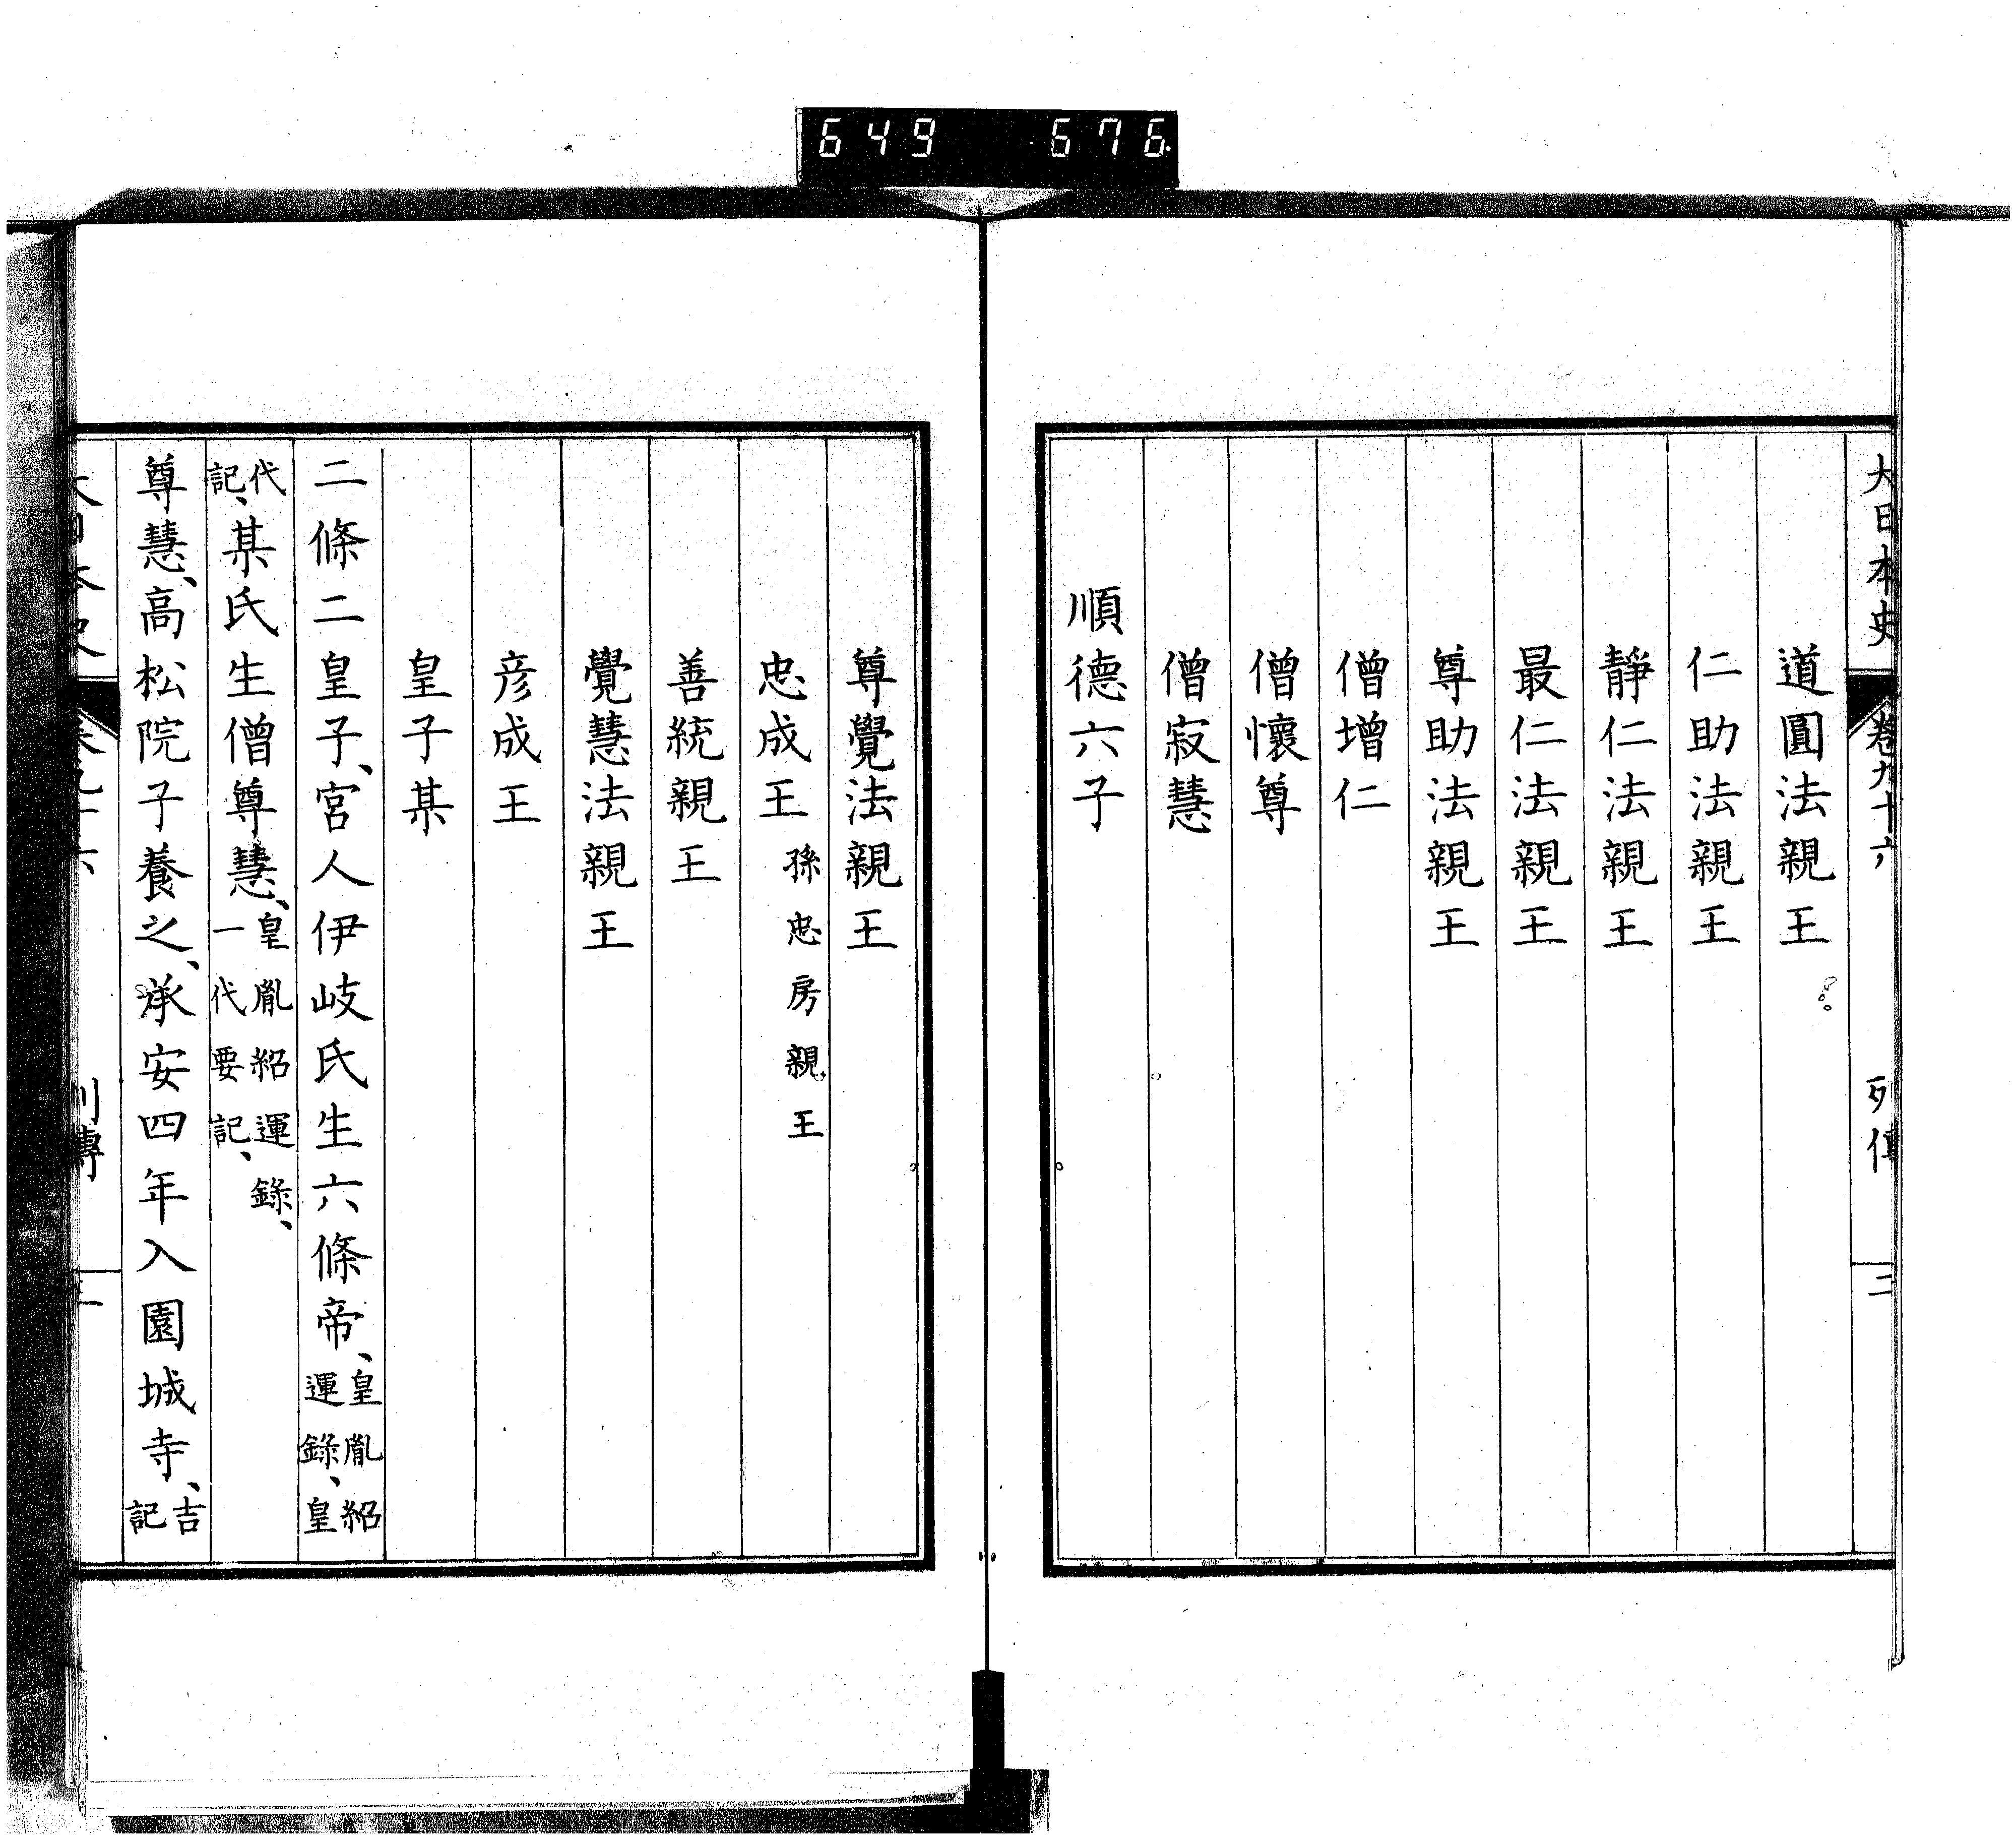 649 676
大日本史 卷九十六 列傳 二
道圓法親王
仁助法親王
靜仁法親王
最仁法親王
尊助法親王
僧增仁
僧懷尊
僧寂慧
順德六子
尊覺法親王
忠成王 孫忠房親王
善統親王
覺慧法親王
彥成王
皇子某
二條二皇子、宮人伊岐氏生六條帝、皇胤紹運錄、皇
代記、某氏生僧尊慧、皇胤紹運錄、一代要記、
尊慧、高松院子養之、承安四年入園城寺、吉記